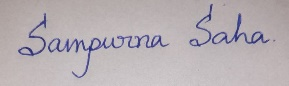 Sampurna Saha.